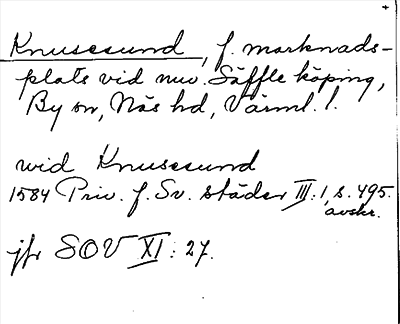 Knusesund, f. marknads-
plats vid nuv. Säffle köping,
By sn, Näs hd, Värml. l.
wid Knusesund
1584 Priv. f. Sv. städer III:1, s. 495.
avskr.
jfr SOV XI: 27.